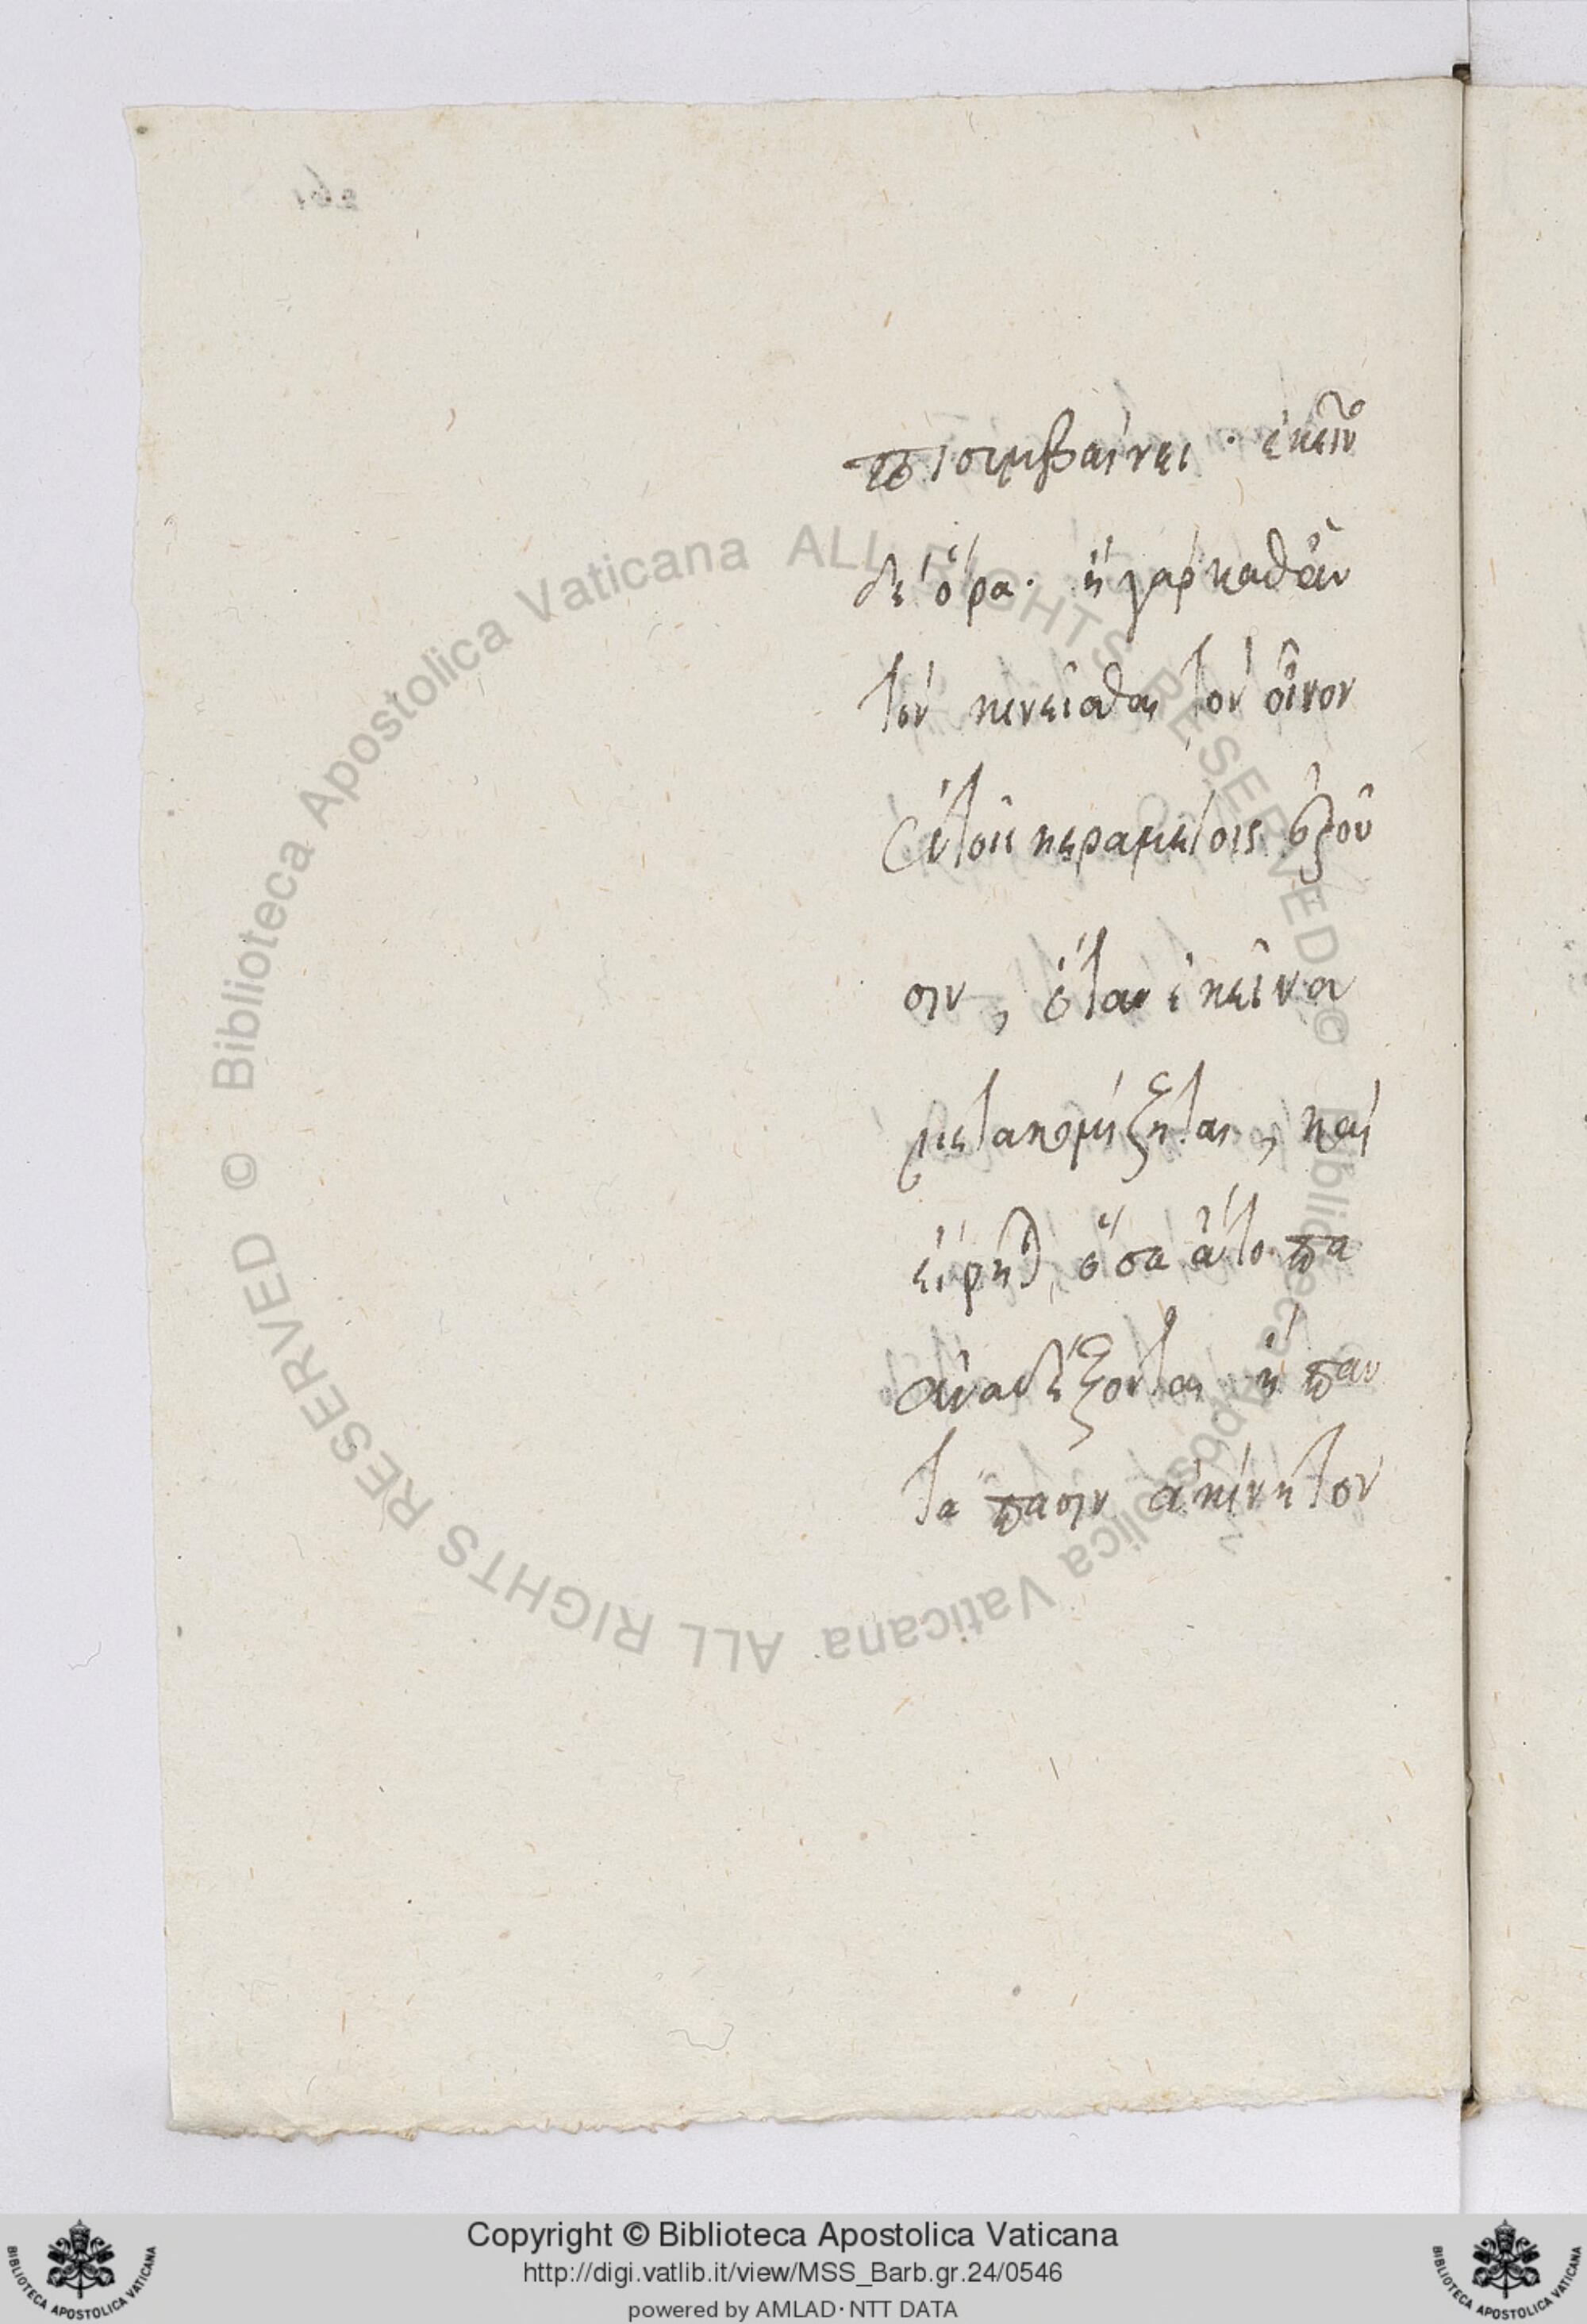 τι συμβαίνει· ἐκεῖνο
δὲ ὅρα· ἢ γὰρ καθ' αὑ
τὸν κινεῖσθαι τὸν οἶνον
ἐν τοῖς κεραμείοις ἐροῦ
σιν, ὅταν ἐκεῖνα
μετακομίζηται, καὶ
ὅσα ἄτοπα
ἀναδέξονται ἢ παν
τάπασιν ἀκίνητον
Biblioteca Apostolica Vaticana ALL RIGHTS RESERVED ©
Biblioteca Apostolica Vaticana ALL RIGHTS RESERVED ©
Copyright © Biblioteca Apostolica Vaticana
http://digi.vatlib.it/view/MSS_Barb.gr.24/0546
powered by AMLAD·NTT DATA
BIBLIOTECA APOSTOLICA VATICANA
BIBLIOTECA APOSTOLICA VATICANA